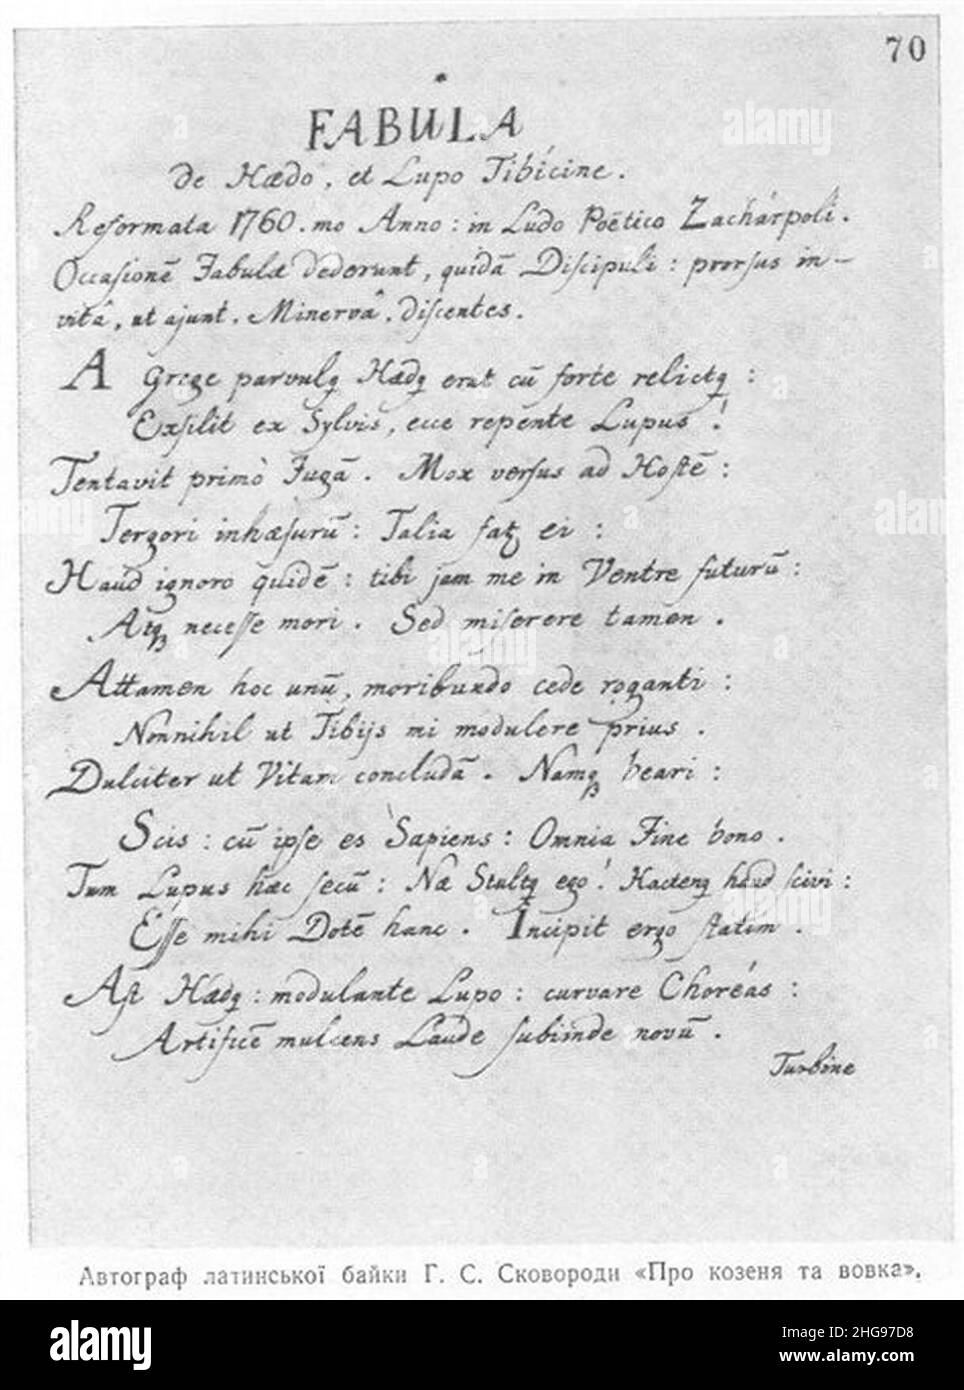 70
FABULA
de Hædo, et Lupo Tibícine.
Reformata 1760.mo Anno: in Ludo Poëtico Zachárpoli.
Occasionē Fabulæ dederunt, quidā Discipuli: prorsus in-
vitâ, ut ajunt, Minervâ, discentes.
A Grege parvulꝯ Hædꝯ erat cū forte relictꝯ:
Exsilit ex Sylvis, ecce repente Lupus!
Tentavit primò Fugā. Mox versus ad Hostē:
Tergori inhæsurū: Talia fatꝯ ei:
Haud ignoro quidē: tibi jam me in Ventre futurū:
Atqꝫ necesse mori. Sed miserere tamen.
Attamen hoc unū, moribundo cede roganti:
Nonnihil ut Tibijs mi modulere prius.
Dulciter ut Vitam concludā. Namqꝫ beari:
Scis: cū ipse es Sapiens: Omnia Fine bono.
Tum Lupus hæc secū: Næ Stultꝯ ego! Hactenꝯ haud scivi:
Esse mihi Dotē hanc. Incipit ergo statim.
Ast Hædꝯ: modulante Lupo: curvare Choréas:
Artificē mulcens Laude subinde novū.
Turbine
Автограф латинської байки Г. С. Сковороди «Про козеня та вовка».
alamy
Image ID: 2HG97D8
www.alamy.com